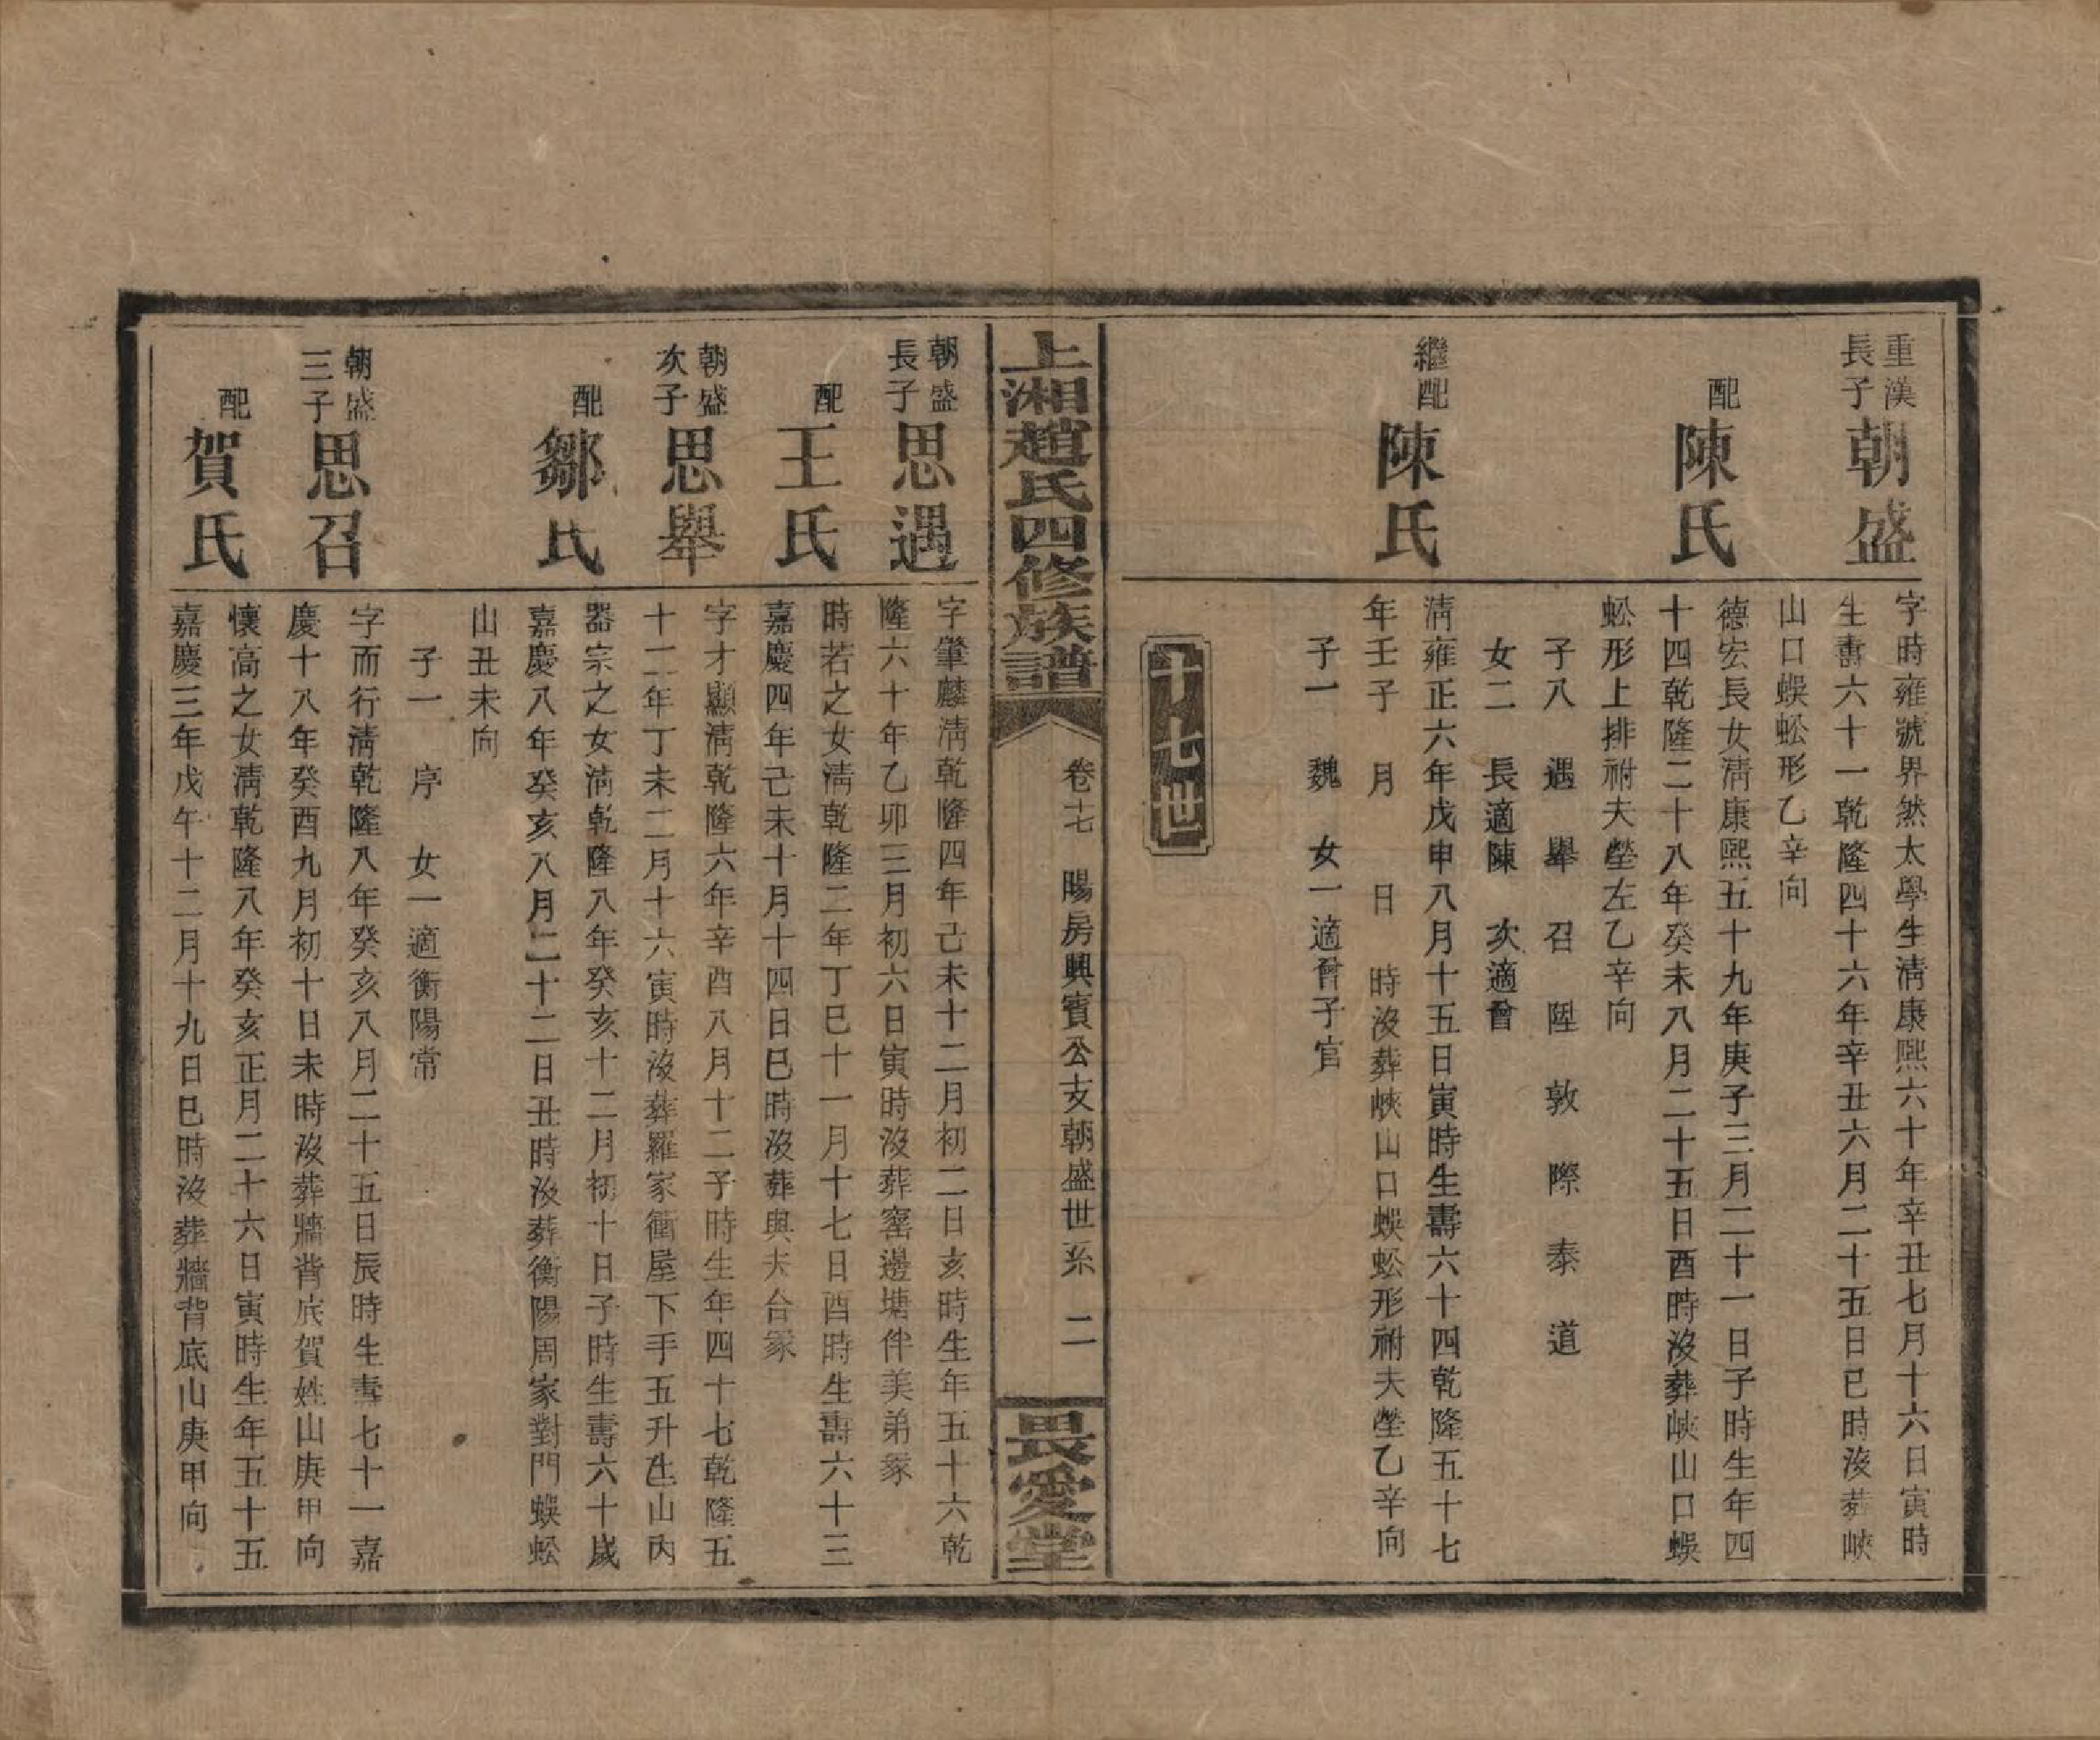 重漢
長子
朝盛
字時雍號界然太學生淸康熙六十年辛丑七月十六日寅時
生壽六十一乾隆四十六年辛丑六月二十五日巳時沒葬峽
山口蜈蚣形乙辛向
配
陳氏
德宏長女淸康熙五十九年庚子三月二十一日子時生年四
十四乾隆二十八年癸未八月二十五日酉時沒葬峽山口蜈
蚣形上排祔夫塋左乙辛向
子八 遇 舉 召 陞 敦 際 泰 道
女二 長適陳 次適曾
繼配
陳氏
淸雍正六年戊申八月十五日寅時生壽六十四乾隆五十七
年壬子 月 日 時沒葬峽山口蜈蚣形祔夫塋乙辛向
子一 魏 女一適曾子官
十七世
上湘趙氏四修族譜
卷十七 暘房興賓公支朝盛世系 二
畏愛堂
朝盛
長子
思遇
字肇麟淸乾隆四年己未十二月初二日亥時生年五十六乾
隆六十年乙卯三月初六日寅時沒葬窰邊塘伴美弟冢
配
王氏
時若之女淸乾隆二年丁巳十一月十七日酉時生壽六十三
嘉慶四年己未十月十四日巳時沒葬與夫合冢
朝盛
次子
思舉
字才顯淸乾隆六年辛酉八月十二子時生年四十七乾隆五
十二年丁未二月十六寅時沒葬羅家衝屋下手五升坵山內
配
鄒氏
器宗之女淸乾隆八年癸亥十二月初十日子時生壽六十歲
嘉慶八年癸亥八月二十二日丑時沒葬衡陽周家對門蜈蚣
山丑未向
子一 序 女一適衡陽常
朝盛
三子
思召
字而行淸乾隆八年癸亥八月二十五日辰時生壽七十一嘉
慶十八年癸酉九月初十日未時沒葬牆背底賀姓山庚甲向
配
賀氏
懷高之女淸乾隆八年癸亥正月二十六日寅時生年五十五
嘉慶三年戊午十二月十九日巳時沒葬牆背底山庚甲向